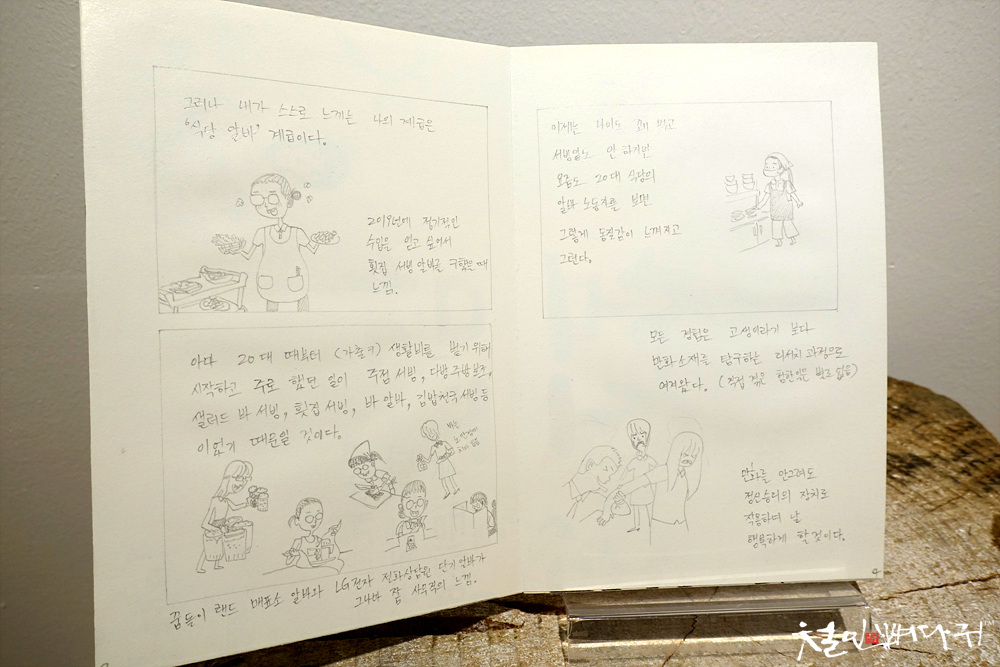 그러나 내가 스스로 느끼는 나의 계급은
'식당 알바' 계급이다.
2019년에 정기적인
수입을 얻고 싶어서
횟집 서빙 알바를 구했을 때
느낌.
아마 20대 때부터 (가출 후) 생활비를 벌기 위해
시작하고 주로 했던 일이 주점 서빙, 다방 주방보조,
샐러드 바 서빙, 횟집 서빙, 바 알바, 김밥천국 서빙 등
이었기 때문일 것이다.
꿈돌이 랜드 매표소 알바와 LG전자 전화상담원 단기 알바가
그나마 좀 사무직의 느낌.
이제는 나이도 꽤 먹고
서빙일도 안 하지만
요즘도 20대 식당의
알바 노동자를 보면
그렇게 동질감이 느껴지고
그런다.
모든 경험은 고생이라기 보다
만화 소재를 탐구하는 리서치 과정으로
여겨왔다. (직접 겪은 험한 일은 별로 없음)
만화를 안그려도
정신승리의 장치로
작용하며 날
행복하게 할 것이다.
4